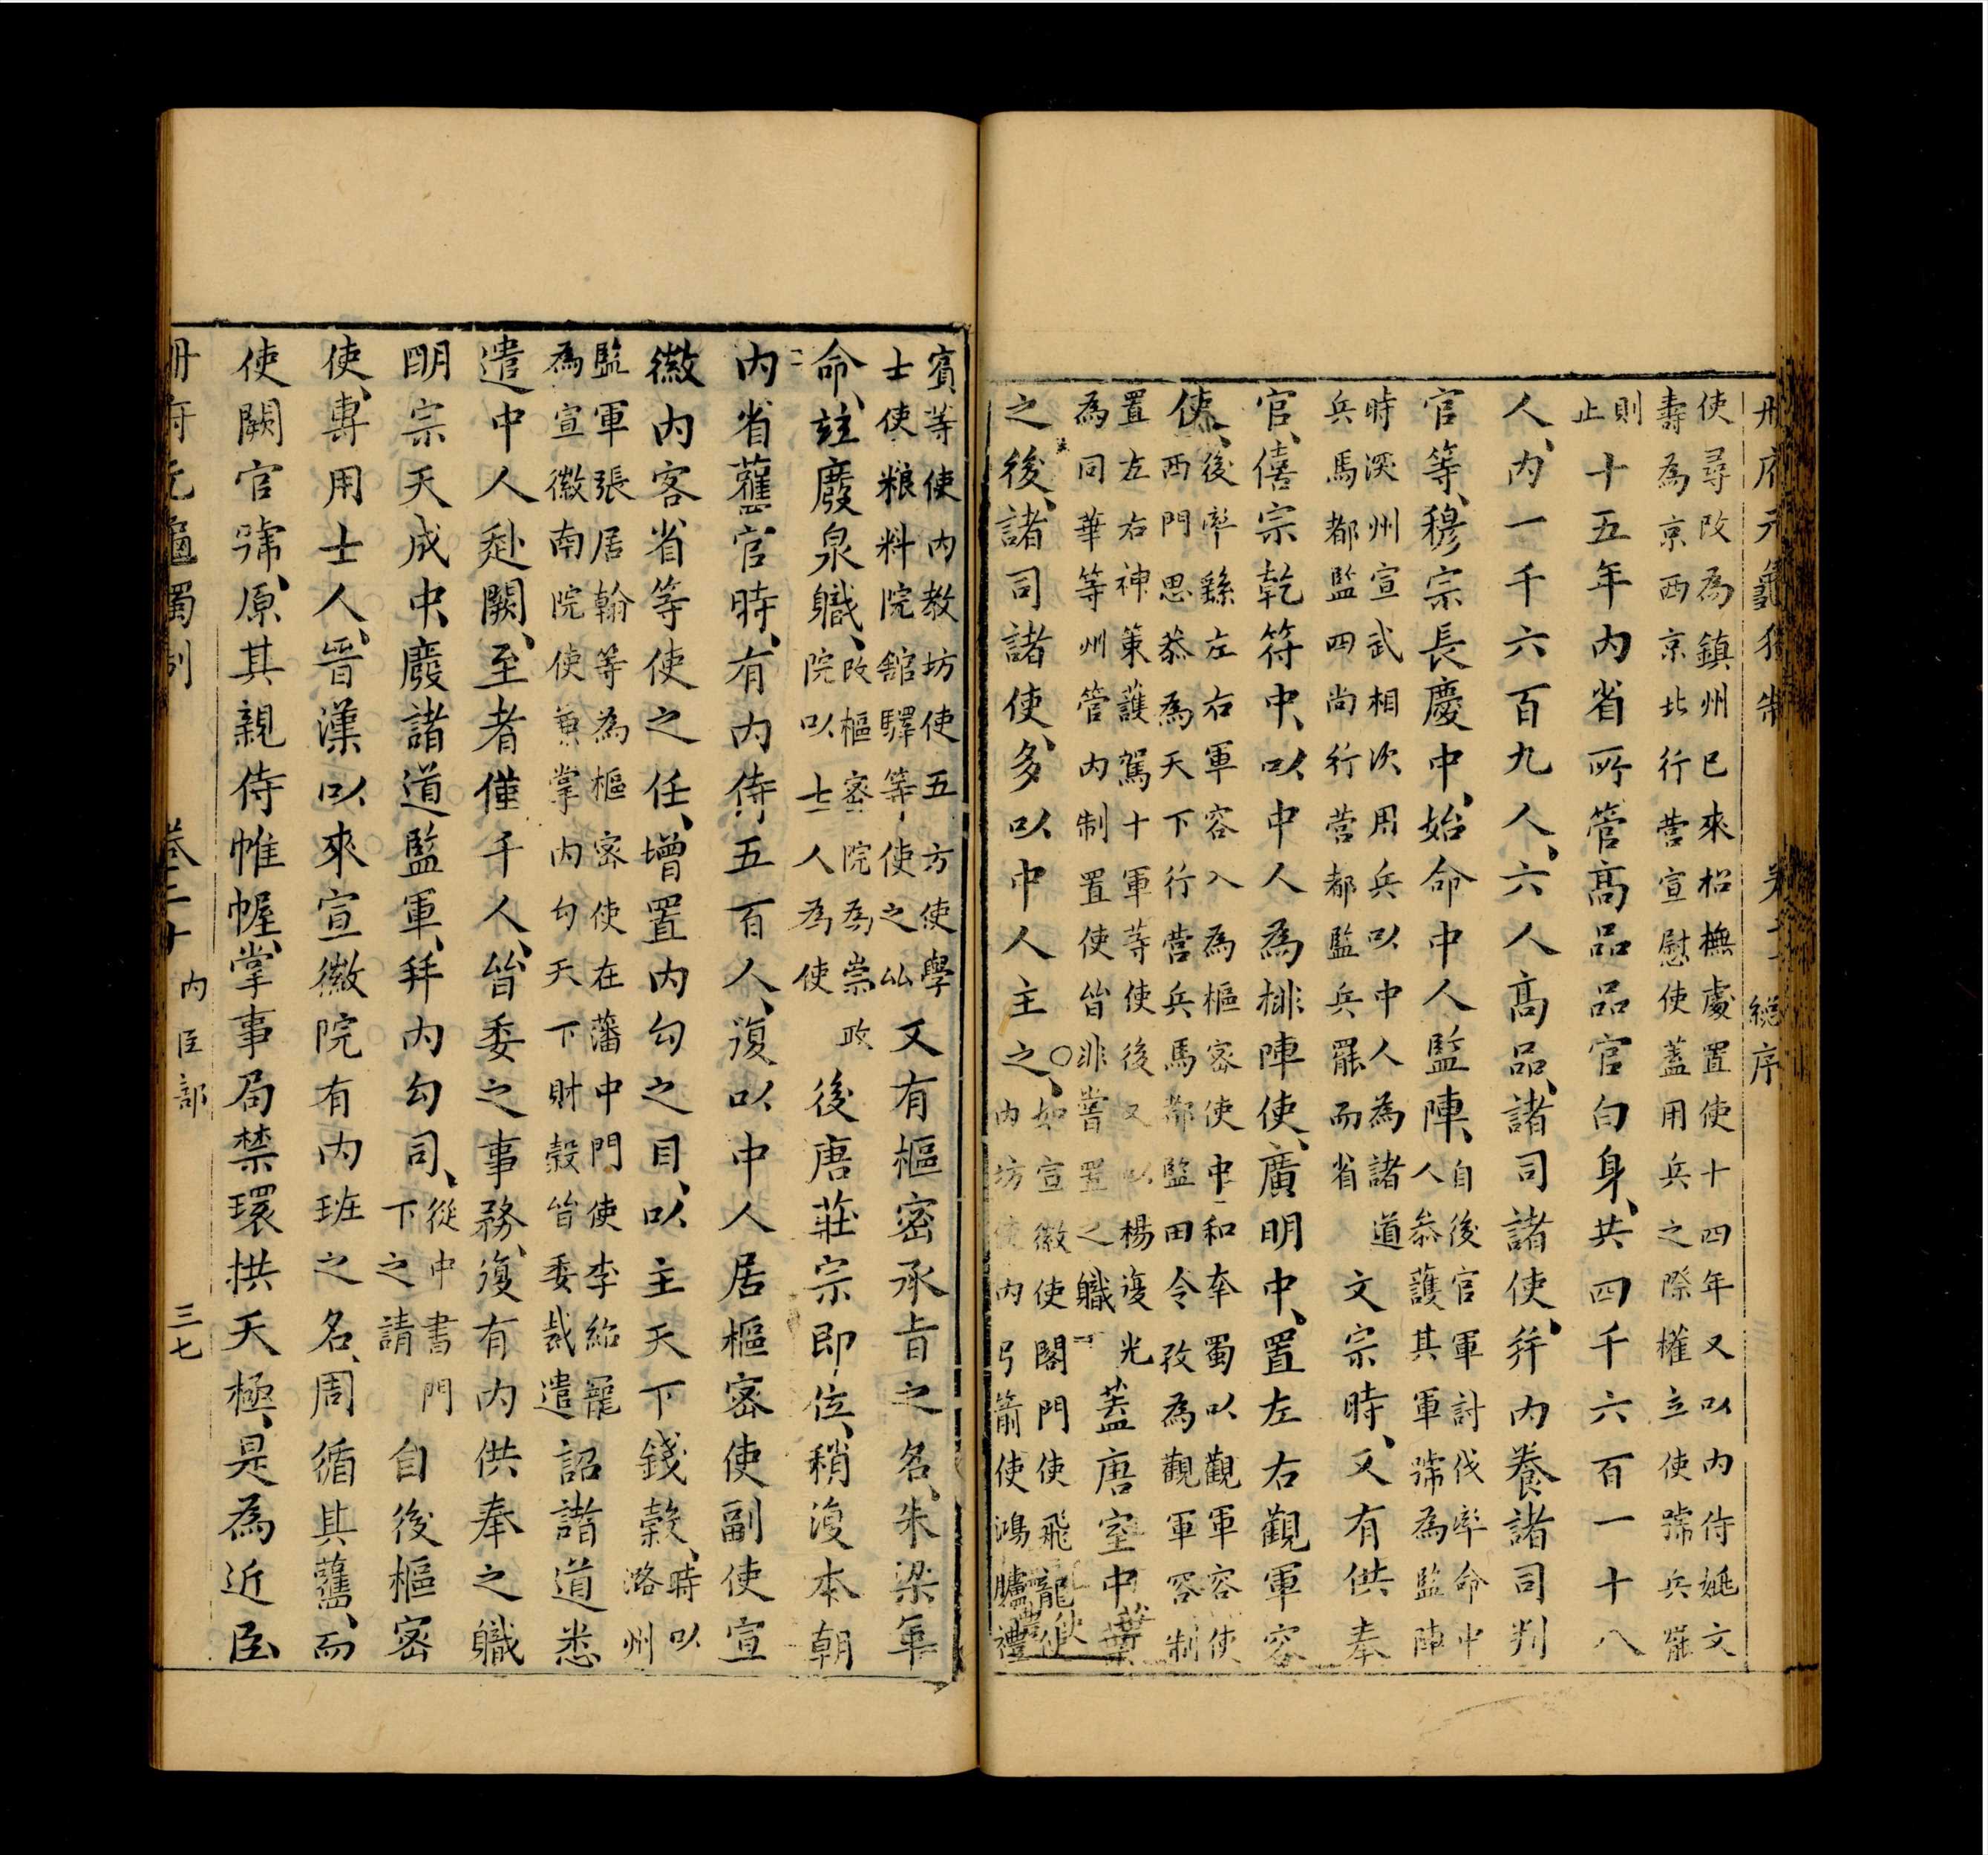 册府元龜獨制 卷二十 總序
使尋改為鎮州已來招撫處置使十四年又以内侍姚文
壽為京西京北行營宣慰使蓋用兵之際權立使號兵罷
則
止
十五年内省所管高品品官白身共四千六百一十八
人内一千六百九人六人高品諸司諸使并内養諸司判
官等穆宗長慶中始命中人監陣
自後官軍討伐率命中
人叅護其軍號為監陣
時深州宣武相次用兵以中人為諸道
兵馬都監四尚行營都監兵罷而省
文宗時又有供奉
官僖宗乾符中以中人為排陣使廣明中置左右觀軍容
使
後率繇左右軍容入為樞密使中和奉蜀以觀軍容使
西門思恭為天下行營兵馬都監田令孜為觀軍容制
置左右神策護駕十軍等使後又以楊復光
為同華等州管内制置使皆非嘗置之職
蓋唐室中葉
之後諸司諸使多以中人主之
如宣徽使閤門使飛龍使
内坊使内弓箭使鴻臚禮
賓等使内教坊使五方使學
士使粮料院舘驛等使之𠔏
又有樞密承旨之名朱梁革
命玆廢泉職
改樞密院為崇政
院以士人為使
後唐莊宗即位稍復本朝
内省舊官時有内侍五百人復以中人居樞密使副使宣
徽内客省等使之任增置内勾之目以主天下錢穀
時以
潞州
監軍張居翰等為樞密使在藩中門使李紹罷
為宣徽南院使兼掌内勾天下財穀皆委裁遣
詔諸道悉
遣中人赴闕至者僅千人皆委之事務復有内供奉之職
明宗天成中廢諸道監軍并内勾司
從中書門
下之請
自後樞密
使專用士人晋漢以來宣徽院有内班之名周循其舊而
使闕官號原其親侍帷幄掌事局禁環拱天極是為近臣
册府元龜獨制 卷二十 内臣部 三七